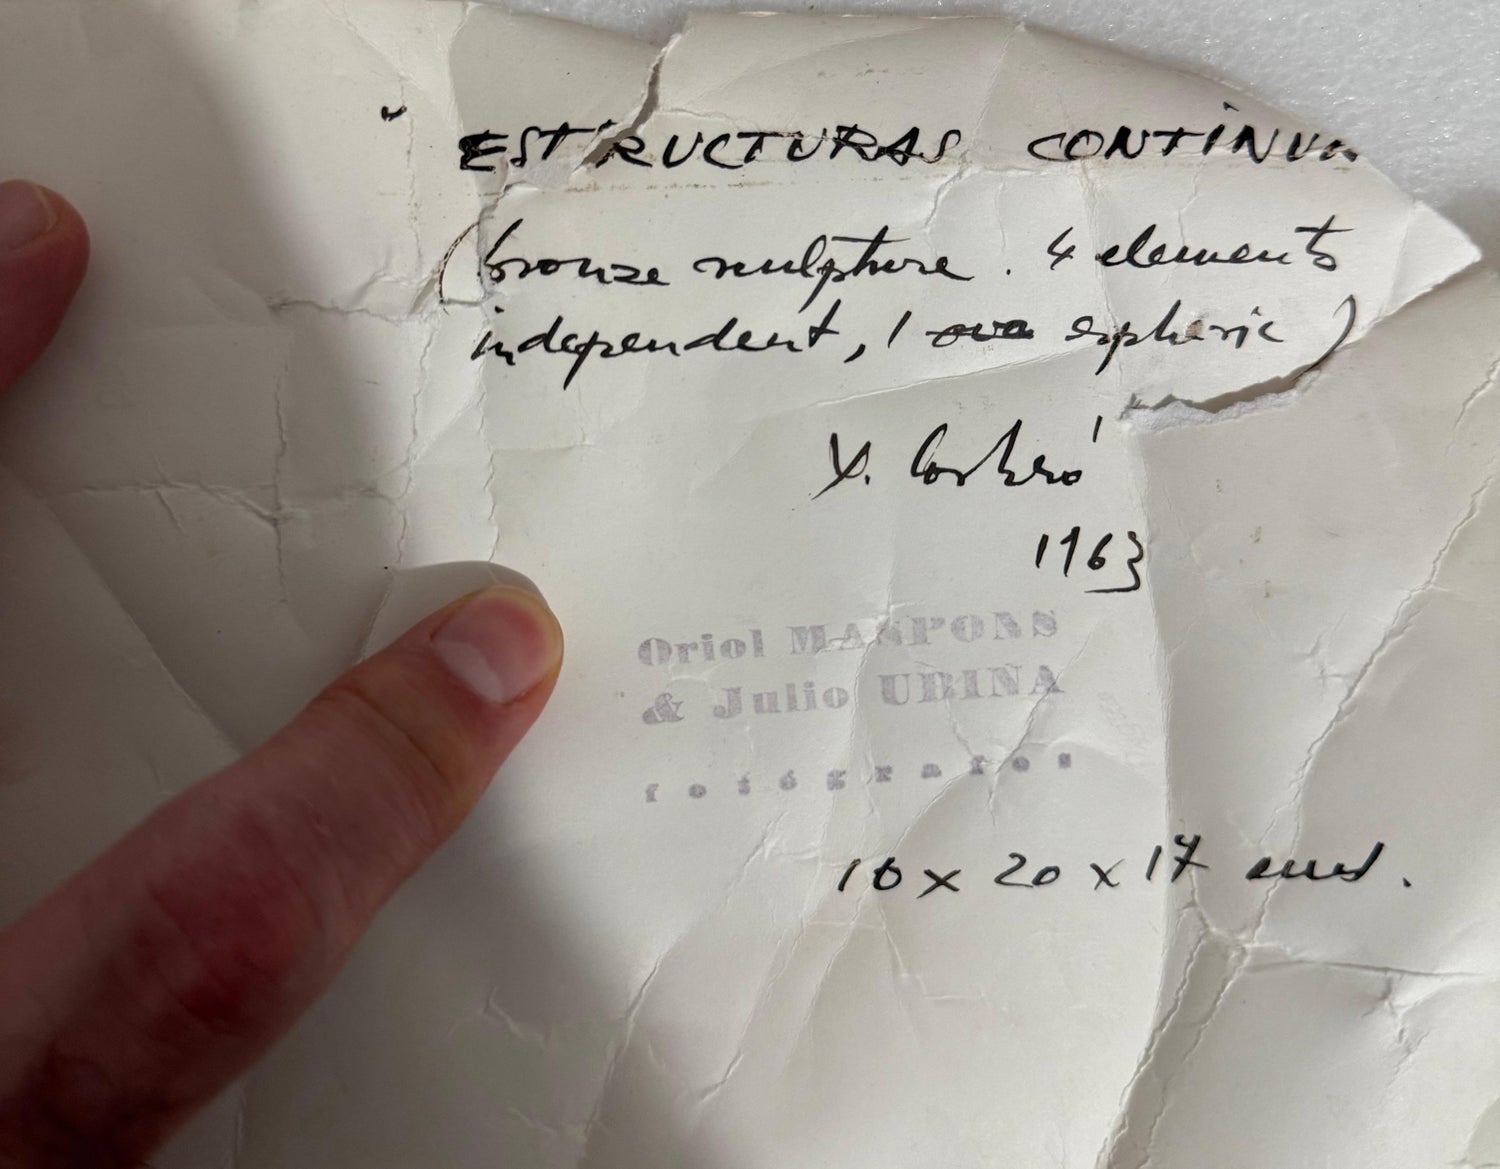 " ESTRUCTURAS CONTINUA
(bronze sculpture. 4 elements
independent, 1 espheric)
X. Corberó
1963
Oriol MASPONS
& Julio UBINA
fotógrafos
10 x 20 x 17 cms.